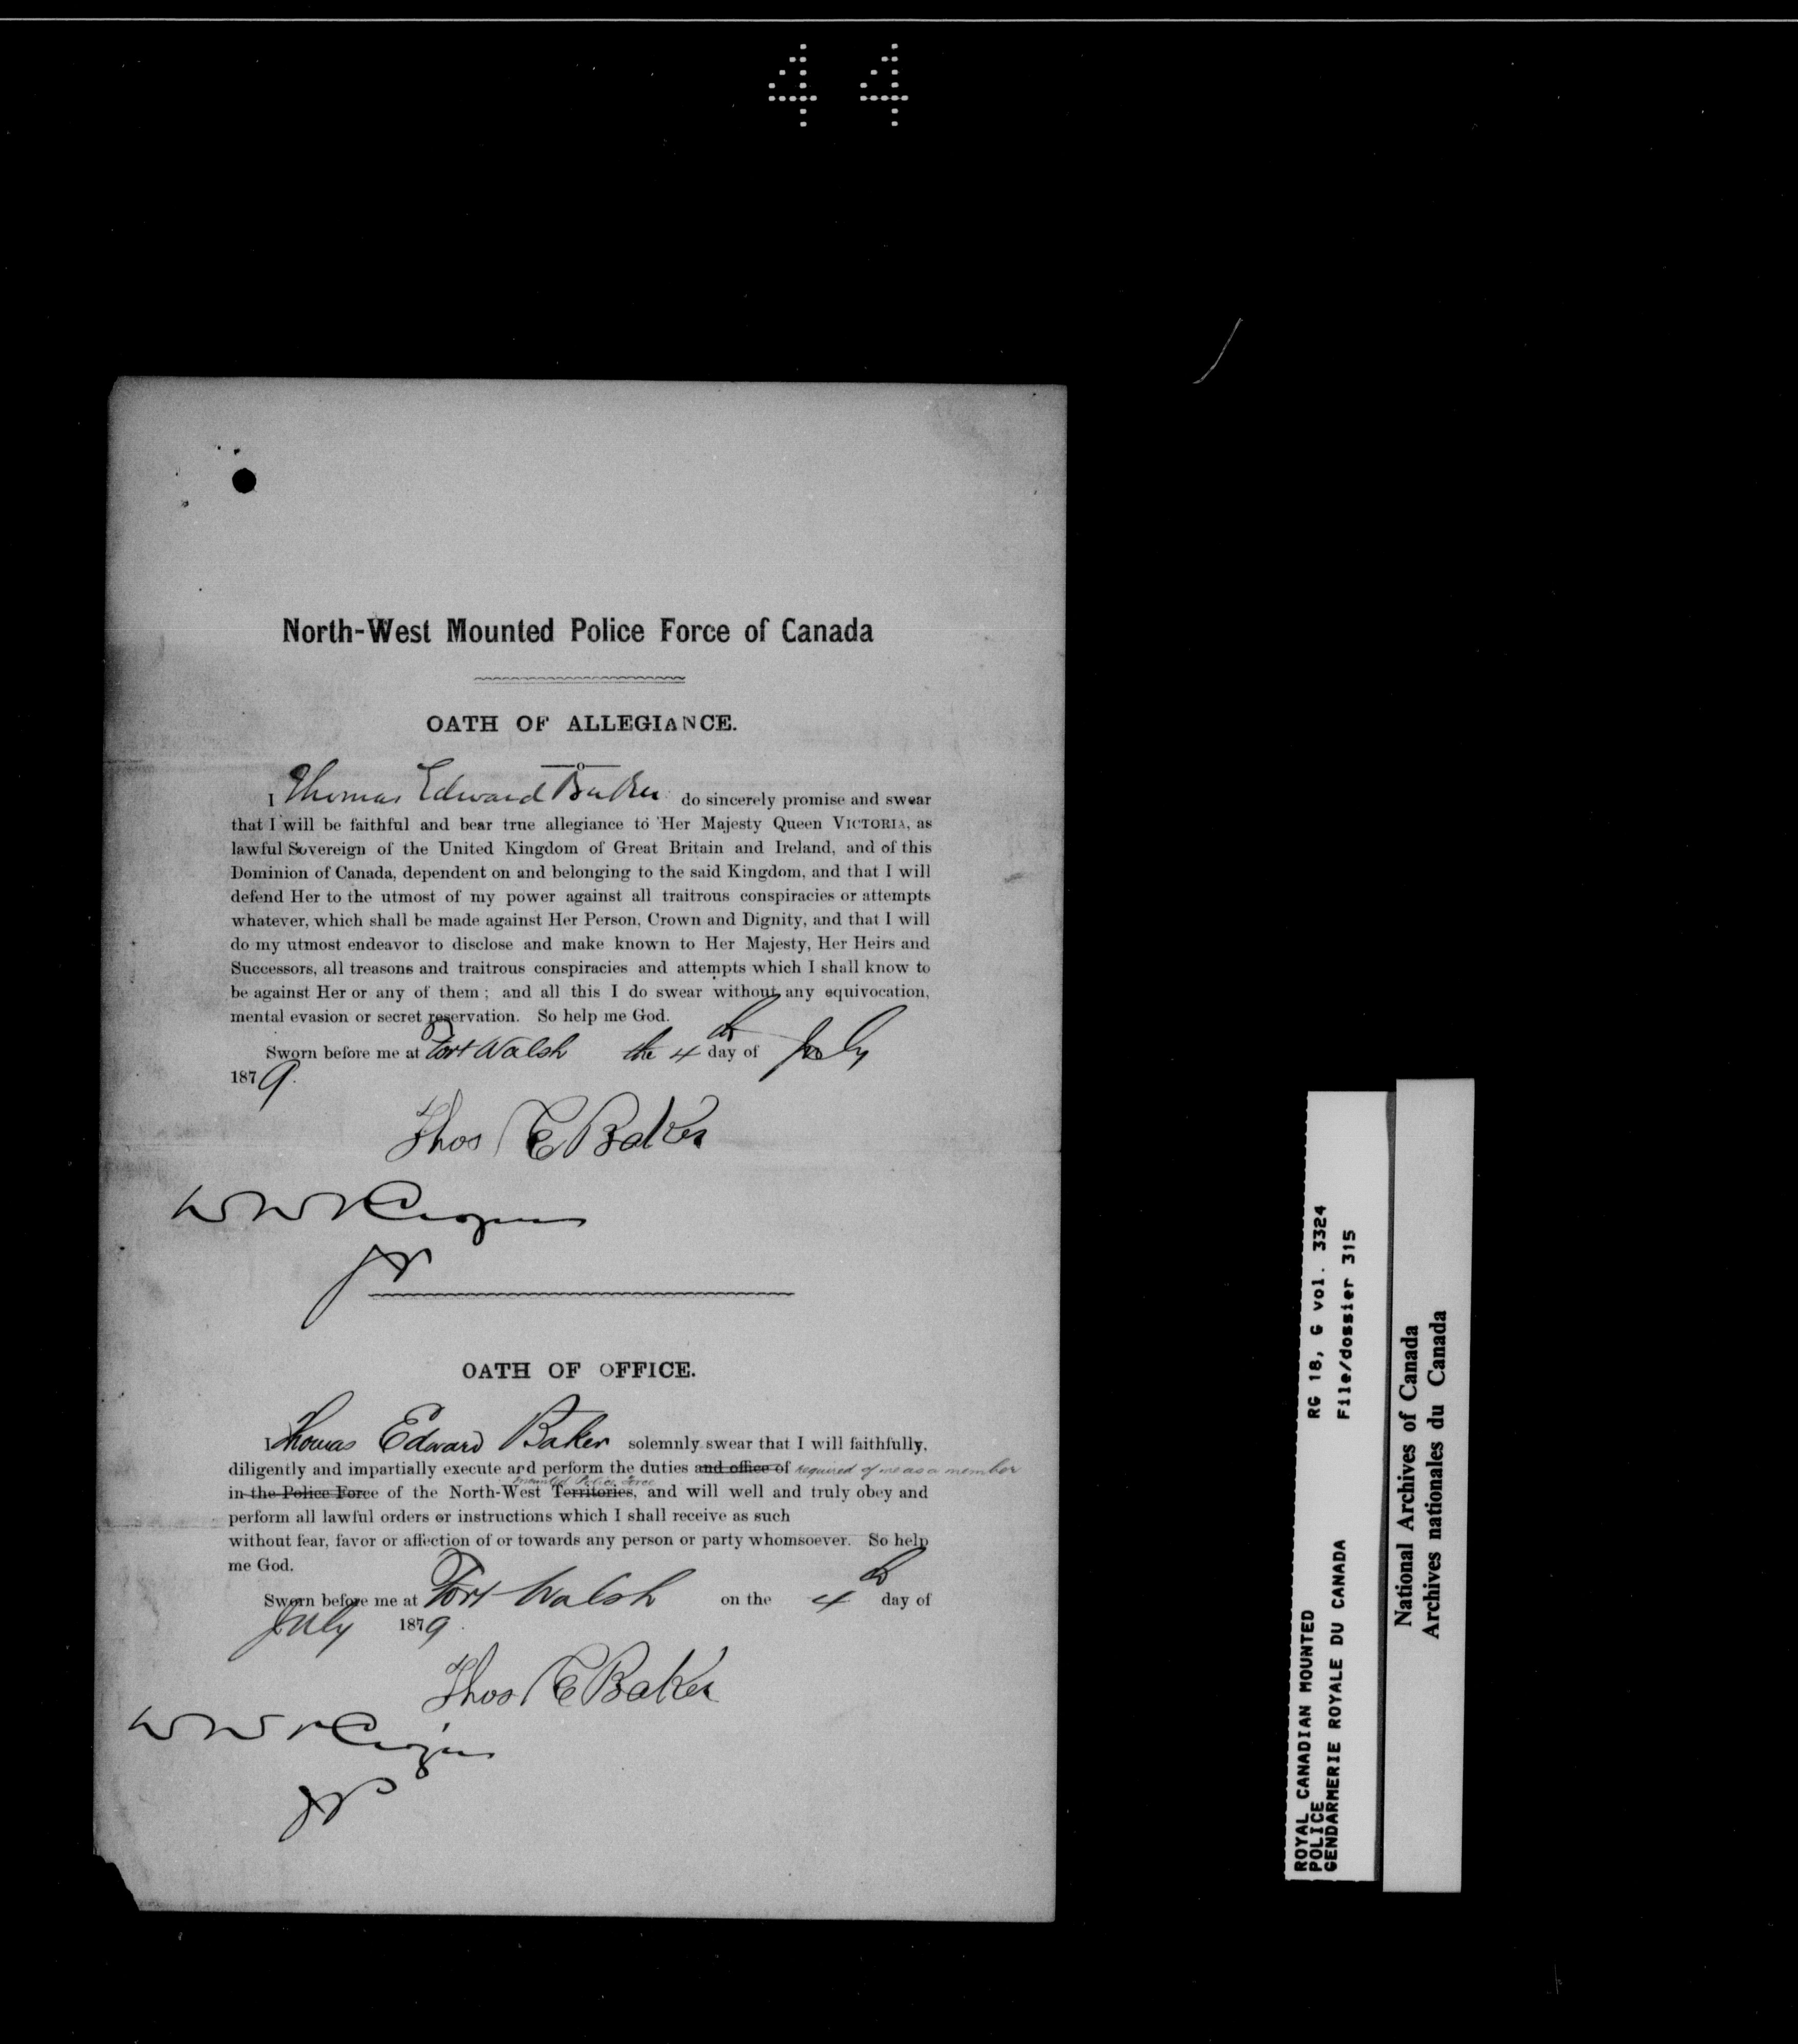 44
North-West Mounted Police Force of Canada
OATH OF ALLEGIANCE.
I Thomas Edward Baker do sincerely promise and swear
that I will be faithful and bear true allegiance to Her Majesty Queen VICTORIA, as
lawful Sovereign of the United Kingdom of Great Britain and Ireland, and of this
Dominion of Canada, dependent on and belonging to the said Kingdom, and that I will
defend Her to the utmost of my power against all traitrous conspiracies or attempts
whatever, which shall be made against Her Person, Crown and Dignity, and that I will
do my utmost endeavor to disclose and make known to Her Majesty, Her Heirs and
Successors, all treasons and traitrous conspiracies and attempts which I shall know to
be against Her or any of them ; and all this I do swear without any equivocation,
mental evasion or secret reservation. So help me God.
Sworn before me at Fort Walsh the 4th day of July
1879.
Thos E Baker
JP
OATH OF OFFICE.
I Thomas Edward Baker solemnly swear that I will faithfully,
diligently and impartially execute and perform the duties and office of required of me as a member
Mounted Police Force
in the Police Force of the North-West Territories, and will well and truly obey and
perform all lawful orders or instructions which I shall receive as such
without fear, favor or affection of or towards any person or party whomsoever. So help
me God.
Sworn before me at Fort Walsh on the 4th day of
July 1879.
Thos E Baker
JP
ROYAL CANADIAN MOUNTED RG 18, G vol. 3324
POLICE
GENDARMERIE ROYALE DU CANADA File/dossier 315
National Archives of Canada
Archives nationales du Canada